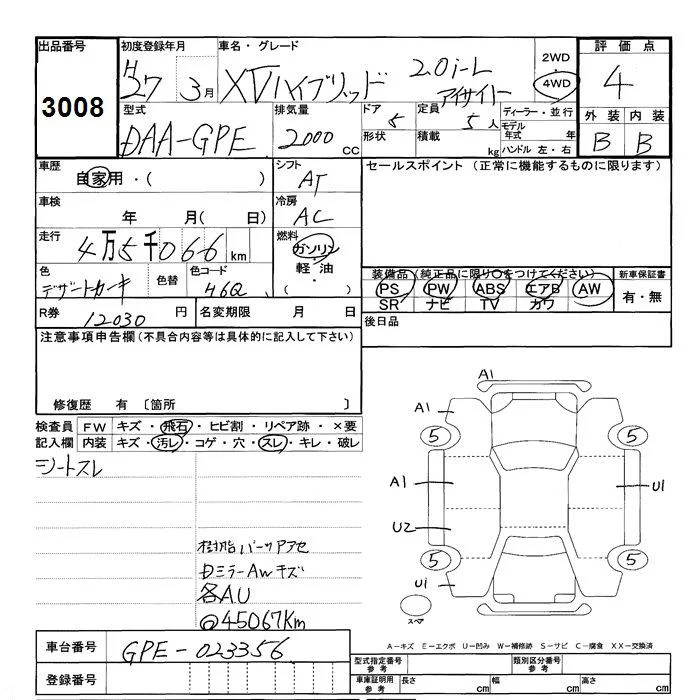 出品番号 初度登録年月 車名・グレード 2WD 評価点
3008 H27 3月 XVハイブリッド 2.0i-L アイサイト 4WD 4
型式 排気量 ドア 定員 ディーラー・並行 外装 内装
DAA-GPE 2000cc 5 5人 モデル年式 年 B B
形状 積載 kg ハンドル 左・右
車歴 シフト セールスポイント (正常に機能するものに限ります)
自家用・( ) AT
車検 冷房
年 月( 日) AC
走行 燃料
4万5千066km ガソリン・軽油・( )
色 色替 色コード 装備品(純正品に限り○をつけてください) 新車保証書
デザートカーキ 46Q PS PW ABS エアB AW 有・無
SR ナビ TV カワ
R券 12030円 名変期限 月 日 後日品
注意事項申告欄(不具合内容等は具体的に記入して下さい)
修復歴 有 〔箇所 〕
検査員 FW キズ・飛石・ヒビ割・リペア跡・×要
記入欄 内装 キズ・汚レ・コゲ・穴・スレ・キレ・破レ
シートスレ
樹脂パーツアアセ
DミラーAWキズ
各AU
@45067Km
A1
A1
5 5
A1 U1
U2
5 5
U1
スペア
A−キズ E−エクボ U−凹み W−補修跡 S−サビ C−腐食 XX−交換済
車台番号 GPE-023356
登録番号
型式指定番号 参考 類別区分番号 参考
車庫証明用 参考 長さ cm 幅 cm 高さ cm